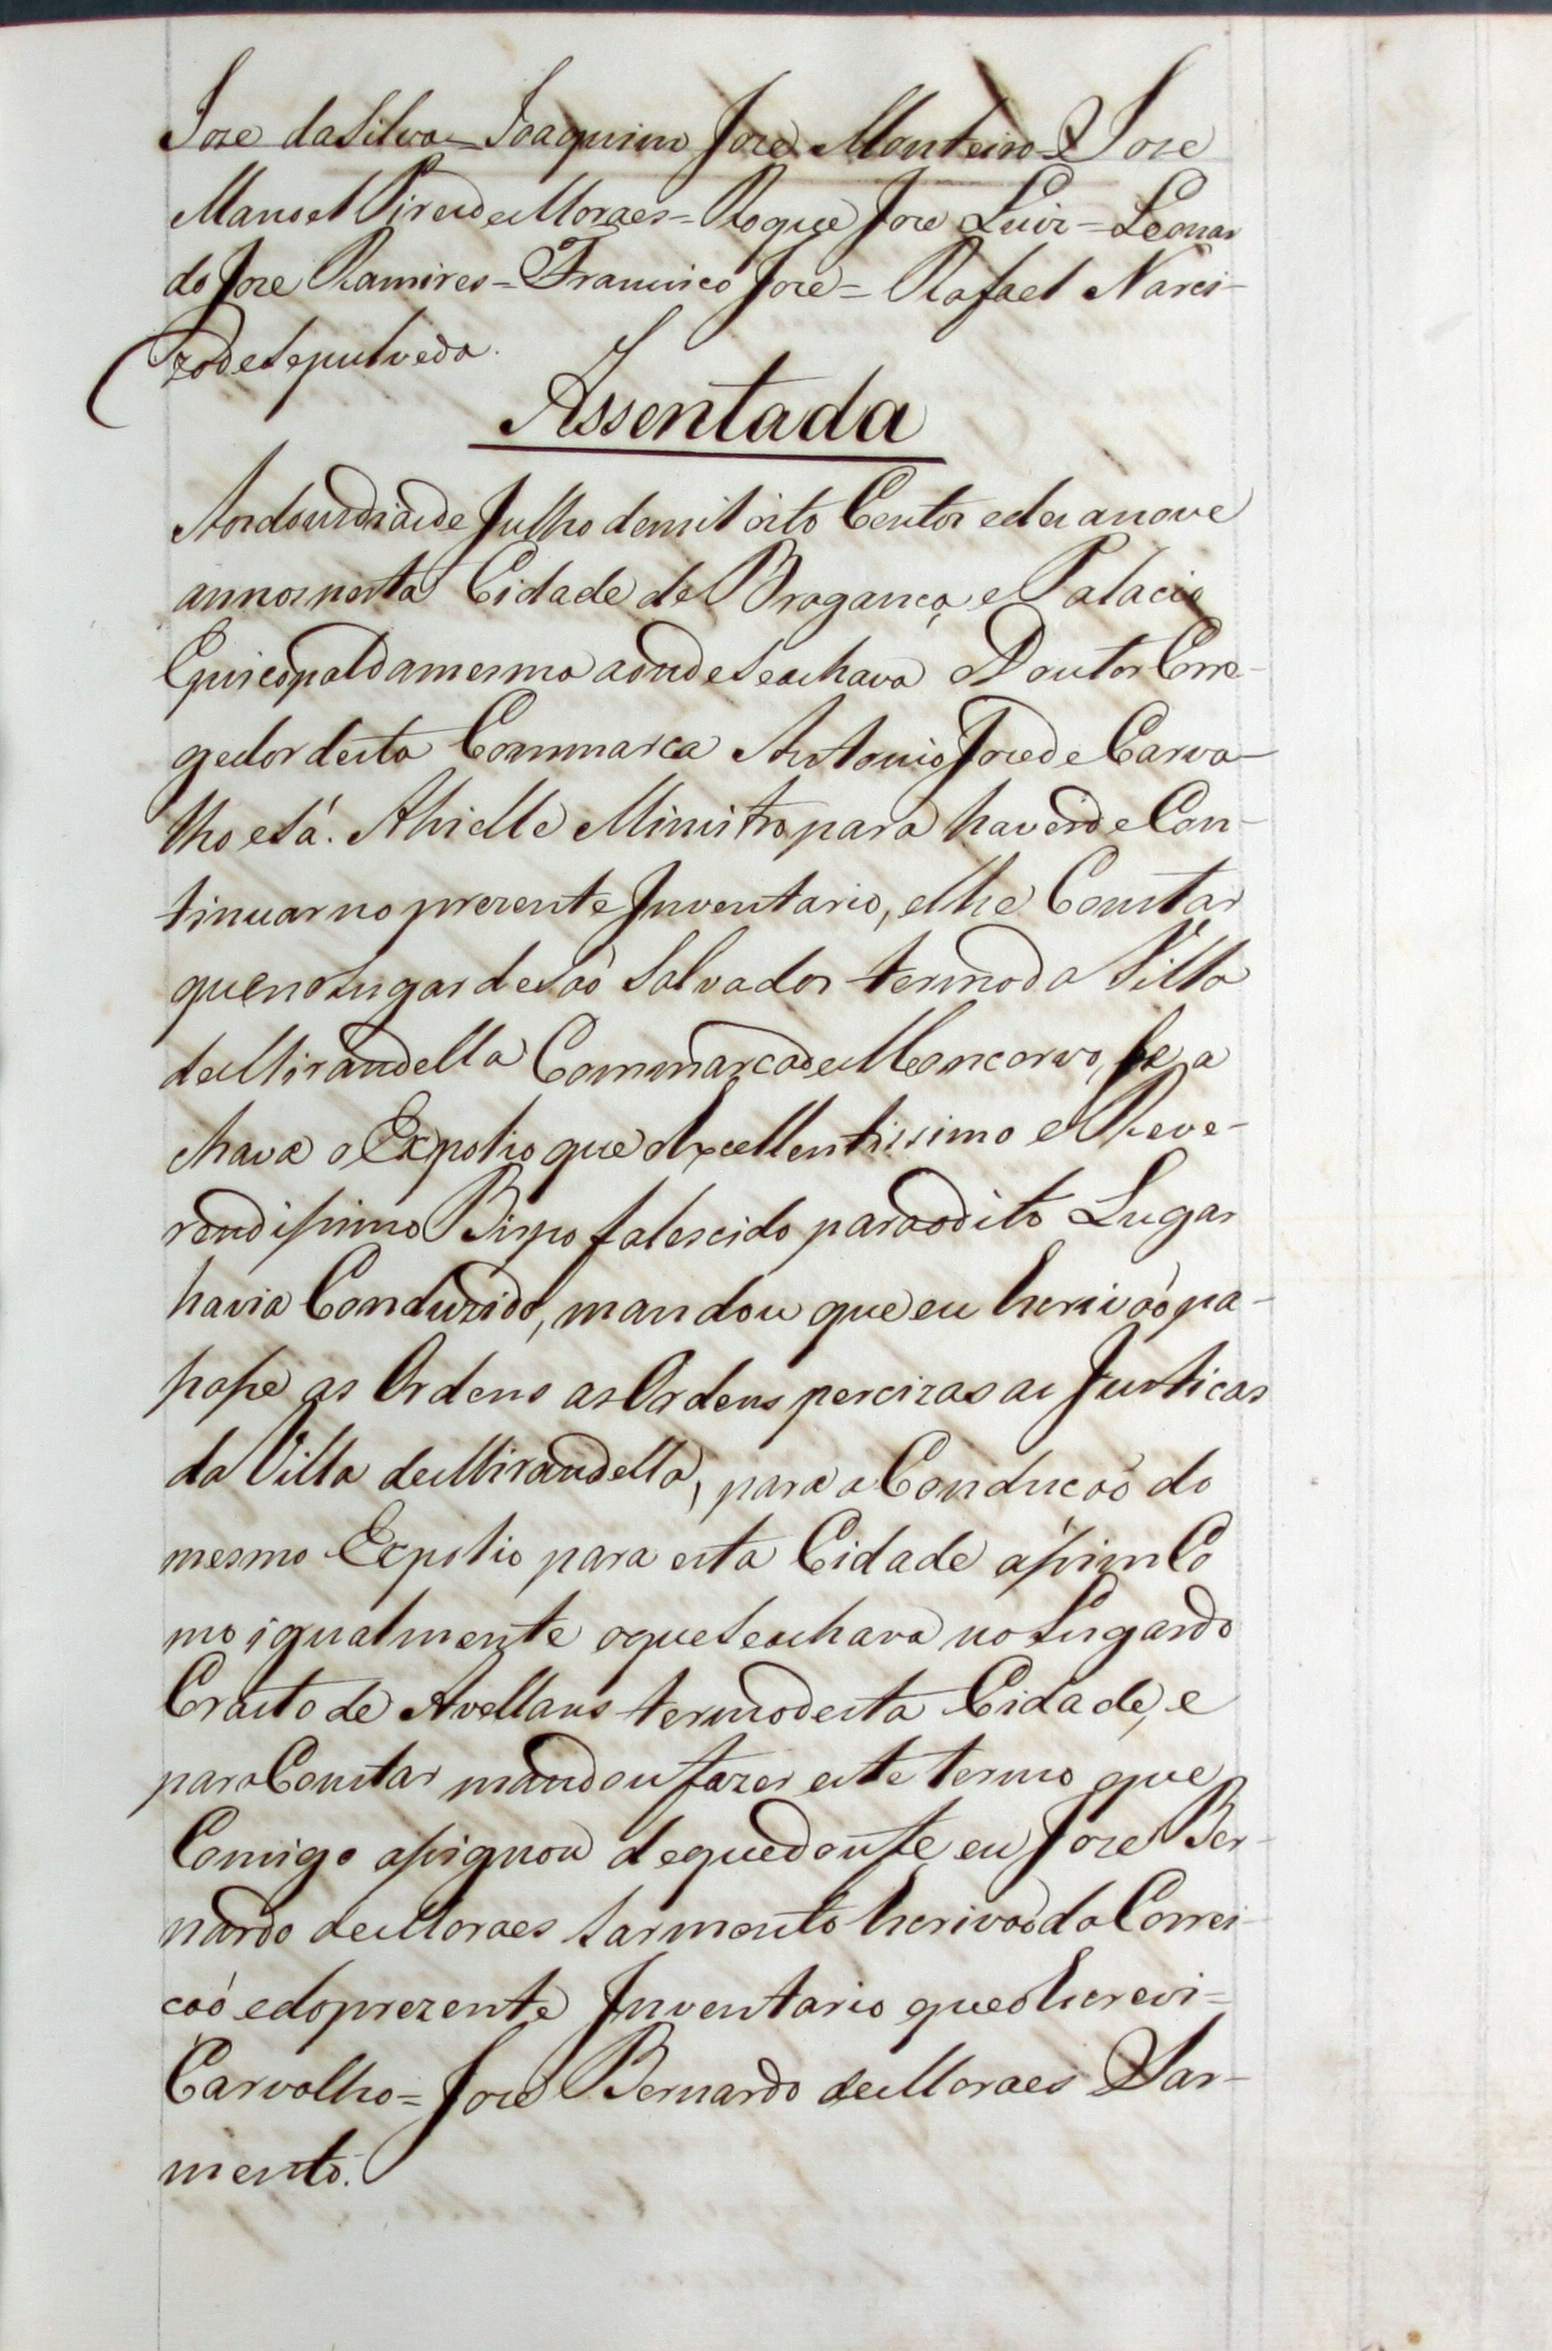 Joze da Silva = Joaquim Joze Monteiro = Joze
Manoel Pires de Moraes = Roque Joze Luiz = Leonar
do Joze Ramires = Francisco Joze = Rafael Narci-
zo de Sepulveda.
Assentada
Aos dous dias de Julho de mil oito Centos e dezanove
annos nesta Cidade de Bragança, e Palacio
Episcopal da mesma aonde se achava Doutor Corre-
gedor desta Commarca Antonio Joze de Carva-
lho e Sá. Ahi elle Ministro para haver de Con-
tinuar no prezente Inventario, e lhe Constar
que no Lugar de Saõ Salvador termo da Villa
de Mirandella Commarca de Moncorvo, se a
chava o Expolio que o Excellentissimo e Reve-
rendissimo Bispo falescido para o dito Lugar
havia Conduzido, mandou que eu Escrivaõ pa-
sasse as Ordens as Ordens percizas as Justicas
da Villa de Mirandella, para a Conducaõ do
mesmo Expolio para esta Cidade assim Co
mo igualmente o que se achava no Lugar do
Crasto de Avellans termo desta Cidade, e
para Constar mandou fazer este termo que
Comigo assignou de que dou fe eu Joze Ber-
nardo de Moraes Sarmento Escrivaõ da Correi-
caõ e do prezente Inventario que o Escrevi =
Carvalho = Joze Bernardo de Moraes Sar-
mento.